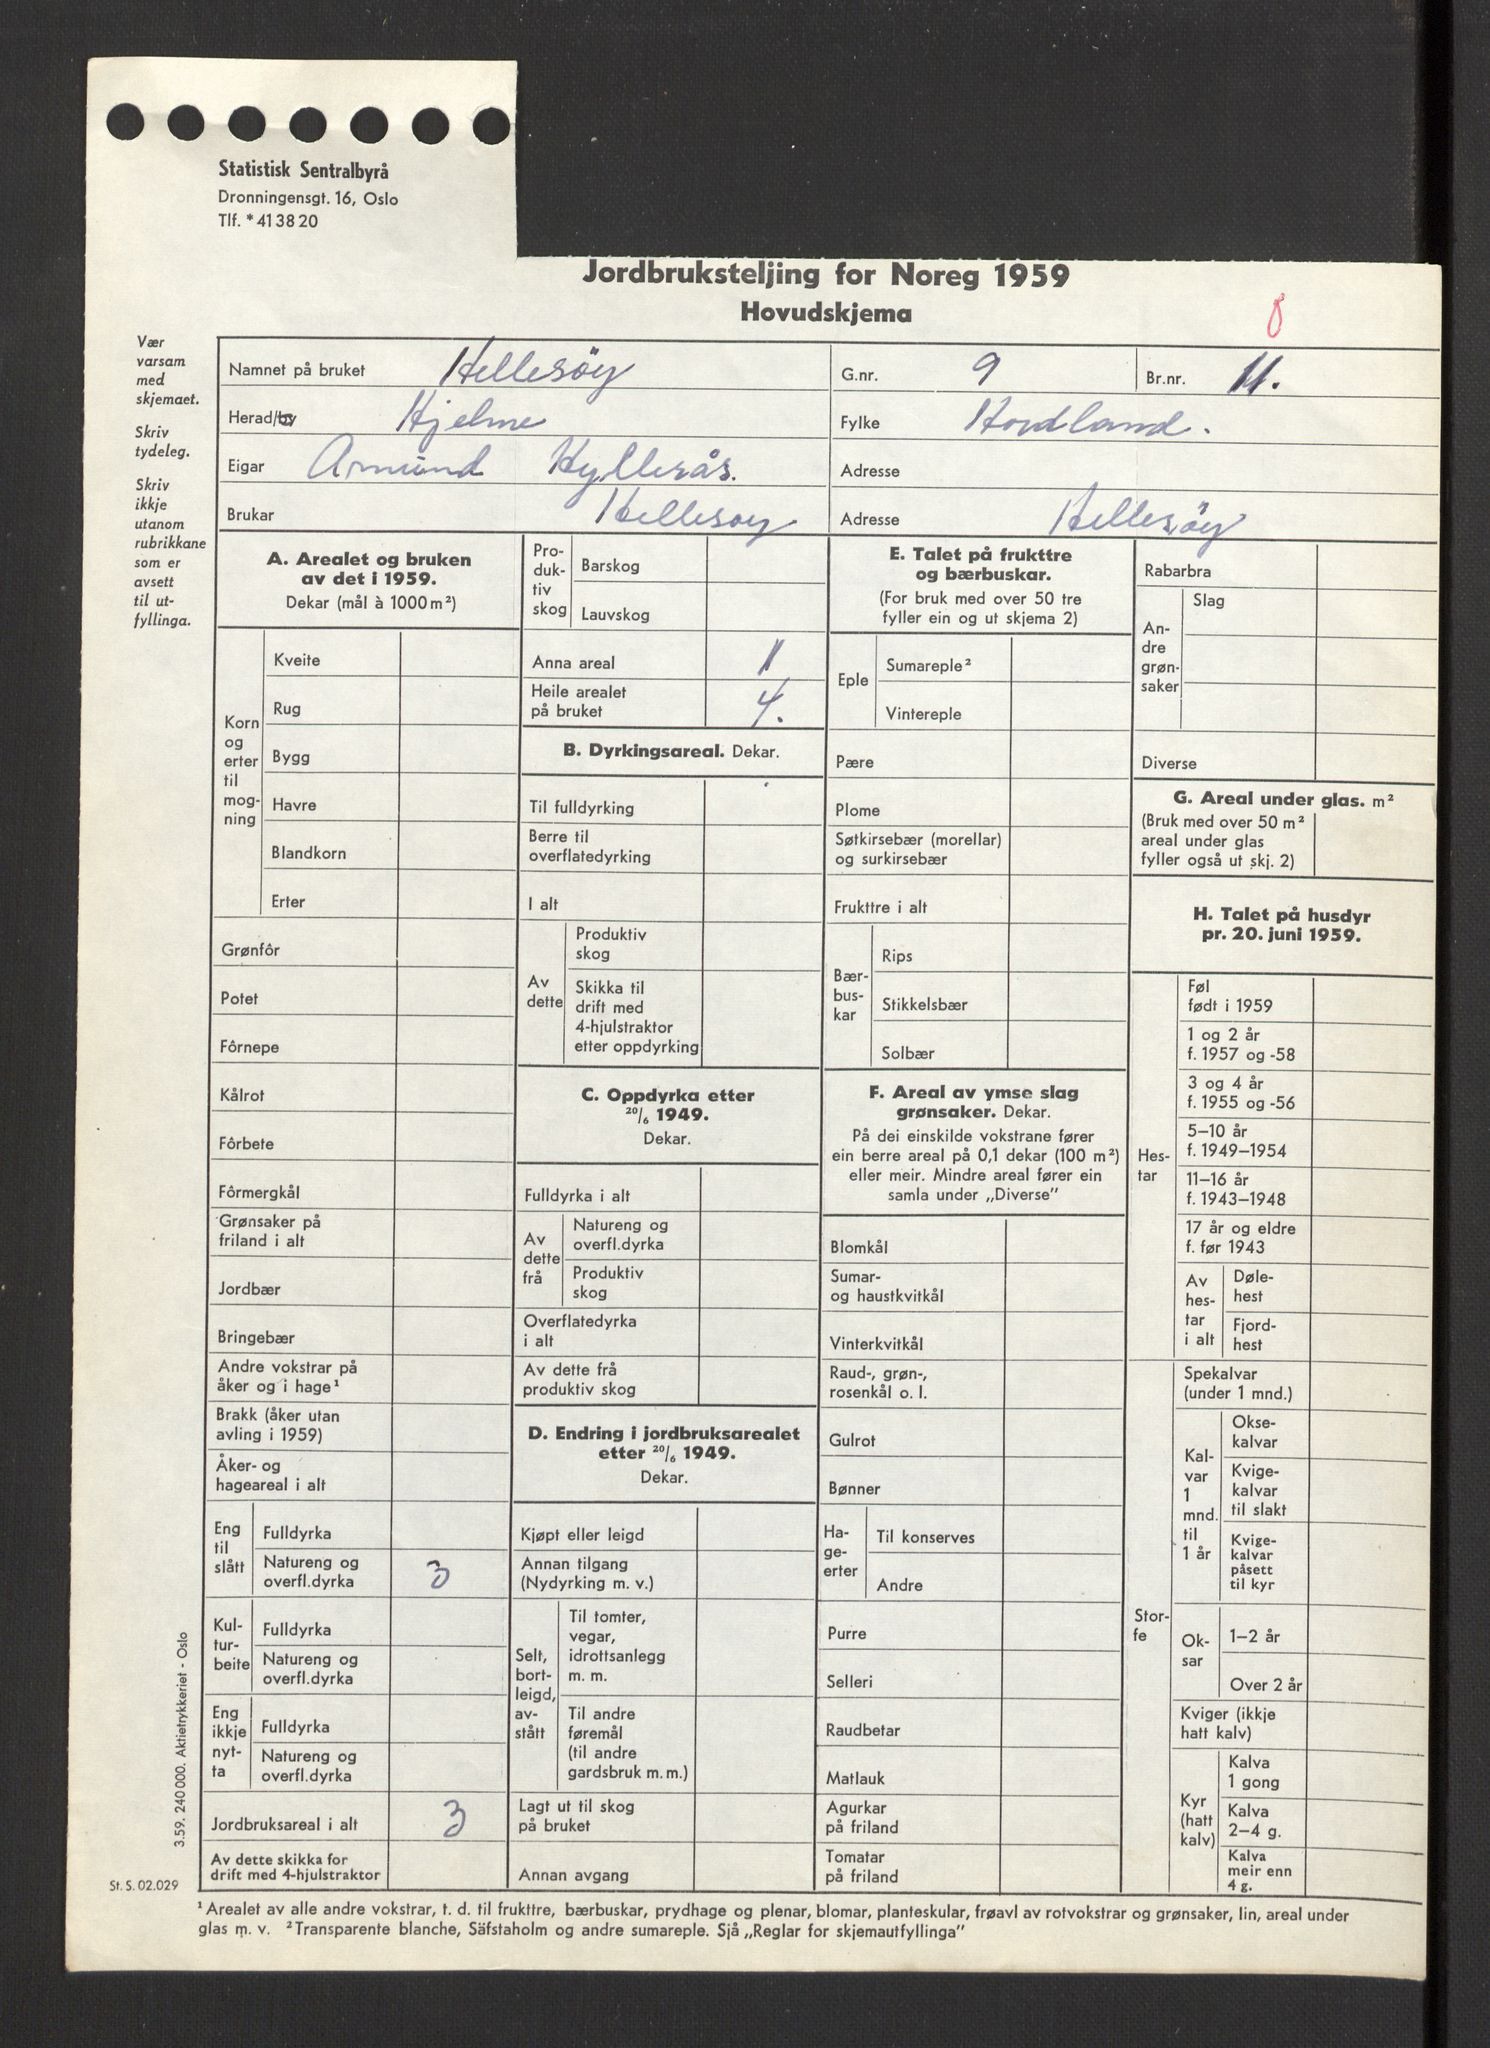 Statistisk Sentralbyrå
Dronningensgt. 16, Oslo
Tlf. *413820
Jordbruksteljing for Noreg 1959
Hovudskjema
8
Vær
varsam
med
skjemaet.
Skriv
tydeleg.
Skriv
ikkje
utanom
rubrikkane
som er
avsett
til ut-
fyllinga.
Namnet på bruket Hellesöy G.nr. 9 Br.nr. 11.
Herad/by Hjelme Fylke Hordland.
Eigar Armund Hyllesås. Adresse
Brukar Hellesoy Adresse Hellesöy
A. Arealet og bruken
av det i 1959.
Dekar (mål à 1000 m²)
Korn
og
erter
til
mog-
ning
Kveite
Rug
Bygg
Havre
Blandkorn
Erter
Grønfôr
Potet
Fôrnepe
Kålrot
Fôrbete
Fôrmergkål
Grønsaker på
friland i alt
Jordbær
Bringebær
Andre vokstrar på
åker og i hage¹
Brakk (åker utan
avling i 1959)
Åker- og
hageareal i alt
Eng
til
slått
Fulldyrka
Natureng og
overfl.dyrka 3
Kul-
tur-
beite
Fulldyrka
Natureng og
overfl.dyrka
Eng
ikkje
nyt-
ta
Fulldyrka
Natureng og
overfl.dyrka
Jordbruksareal i alt 3
Av dette skikka for
drift med 4-hjulstraktor
Pro-
duk-
tiv
skog
Barskog
Lauvskog
Anna areal 1
Heile arealet
på bruket 4.
B. Dyrkingsareal. Dekar.
Til fulldyrking
Berre til
overflatedyrking
I alt
Av
dette
Produktiv
skog
Skikka til
drift med
4-hjulstraktor
etter oppdyrking
C. Oppdyrka etter
20/6 1949.
Dekar.
Fulldyrka i alt
Av
dette
frå
Natureng og
overfl.dyrka
Produktiv
skog
Overflatedyrka
i alt
Av dette frå
produktiv skog
D. Endring i jordbruksarealet
etter 20/6 1949.
Dekar.
Kjøpt eller leigd
Annan tilgang
(Nydyrking m. v.)
Selt,
bort-
leigd,
av-
stått
Til tomter,
vegar,
idrottsanlegg
m. m.
Til andre
føremål
(til andre
gardsbruk m. m.)
Lagt ut til skog
på bruket
Annan avgang
E. Talet på frukttre
og bærbuskar.
(For bruk med over 50 tre
fyller ein og ut skjema 2)
Eple
Sumareple²
Vintereple
Pære
Plome
Søtkirsebær (morellar)
og surkirsebær
Frukttre i alt
Bær-
bus-
kar
Rips
Stikkelsbær
Solbær
F. Areal av ymse slag
grønsaker. Dekar.
På dei einskilde vokstrane fører
ein berre areal på 0,1 dekar (100 m²)
eller meir. Mindre areal fører ein
samla under „Diverse”
Blomkål
Sumar-
og haustkvitkål
Vinterkvitkål
Raud-, grøn-,
rosenkål o. l.
Gulrot
Bønner
Ha-
ge-
erter
Til konserves
Andre
Purre
Selleri
Raudbetar
Matlauk
Agurkar
på friland
Tomatar
på friland
Rabarbra
An-
dre
grøn-
saker
Slag
Diverse
G. Areal under glas. m²
(Bruk med over 50 m²
areal under glas
fyller også ut skj. 2)
H. Talet på husdyr
pr. 20. juni 1959.
Hes-
tar
Føl
født i 1959
1 og 2 år
f. 1957 og -58
3 og 4 år
f. 1955 og -56
5–10 år
f. 1949–1954
11–16 år
f. 1943–1948
17 år og eldre
f. før 1943
Av
hes-
tar
i alt
Døle-
hest
Fjord-
hest
Stor-
fe
Spekalvar
(under 1 mnd.)
Kal-
var
1
mnd.
til
1 år
Okse-
kalvar
Kvige-
kalvar
til slakt
Kvige-
kalvar
påsett
til kyr
Ok-
sar
1–2 år
Over 2 år
Kviger (ikkje
hatt kalv)
Kyr
(hatt
kalv)
Kalva
1 gong
Kalva
2–4 g.
Kalva
meir enn
4 g.
3.59. 240 000. Aktietrykkeriet - Oslo
St. S. 02.029
¹ Arealet av alle andre vokstrar, t. d. til frukttre, bærbuskar, prydhage og plenar, blomar, planteskular, frøavl av rotvokstrar og grønsaker, lin, areal under
glas m. v. ² Transparente blanche, Säfstaholm og andre sumareple. Sjå „Reglar for skjemautfyllinga”